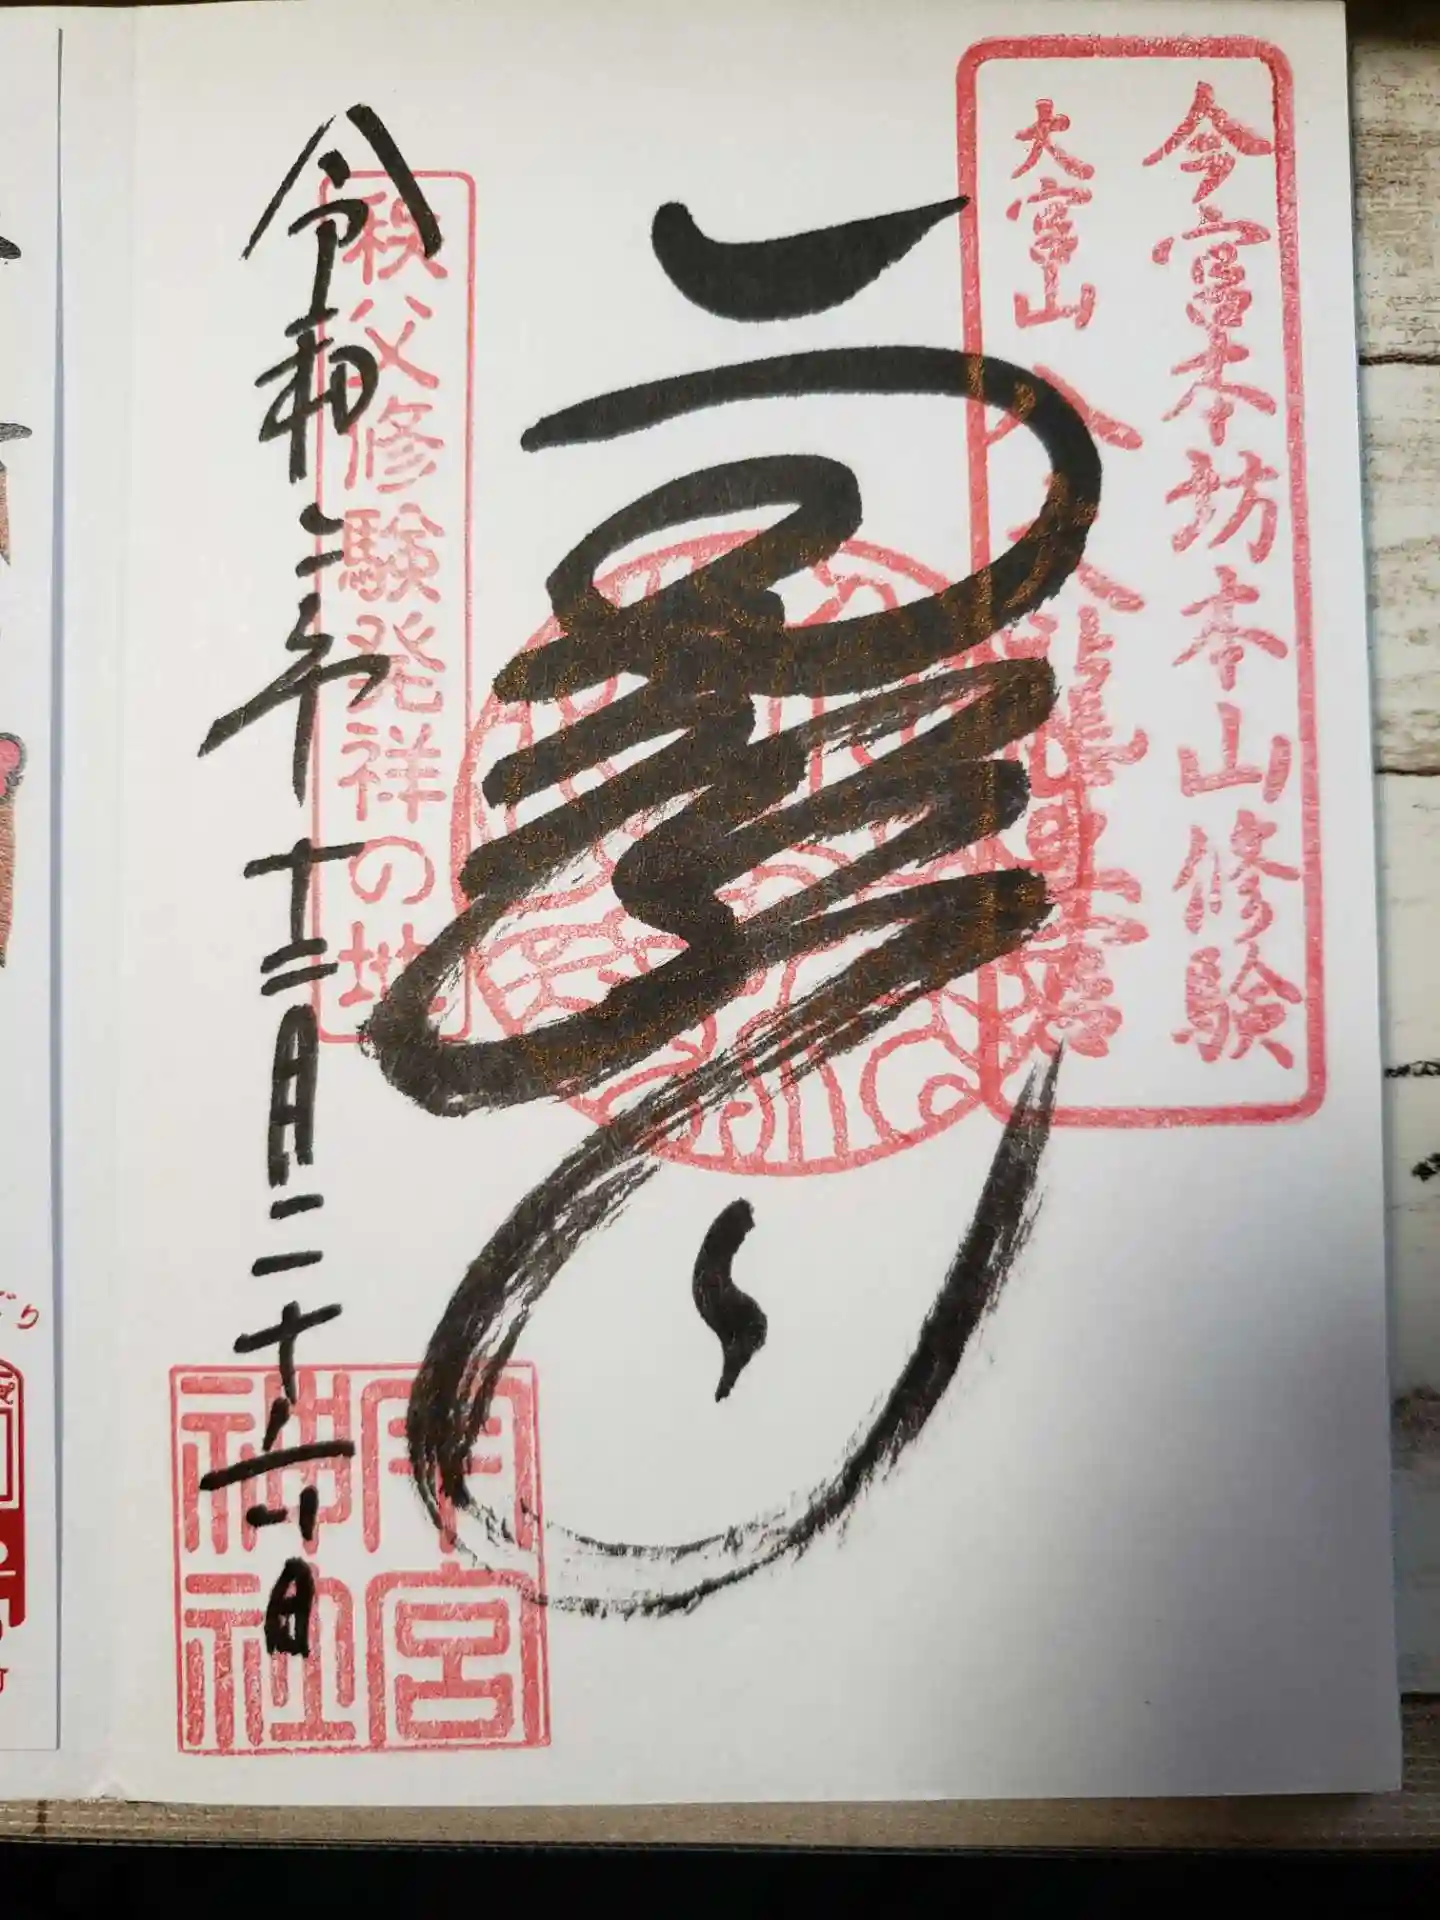 今宮本坊本山修験
大宮山
八大龍王宮
秩父修験発祥の地
令和二年十二月二十六日
今宮
神社